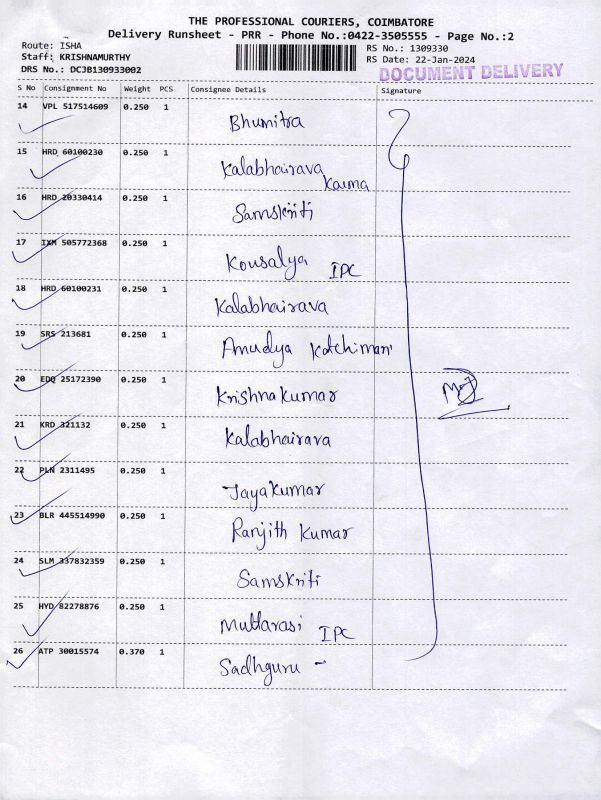 THE PROFESSIONAL COURIERS, COIMBATORE
Delivery Runsheet - PRR - Phone No.:0422-3505555 - Page No.:2
Route: ISHA
RS No.: 1309330
Staff: KRISHNAMURTHY
RS Date: 22-Jan-2024
DRS No.: DCJB130933002
DOCUMENT DELIVERY
S No Consignment No Weight PCS Consignee Details Signature
14 VPL 517514609 0.250 1 Bhumitra
15 HRD 60100230 0.250 1 Kalabhairava
Karma
16 HRD 20330414 0.250 1 Samskriti
17 IXM 505772368 0.250 1 Kousalya IPC
18 HRD 60100231 0.250 1 Kalabhairava
19 SRS 213681 0.250 1 Amudya Katchimani
20 EDQ 25172390 0.250 1 Krishnakumar
21 KRD 321132 0.250 1 Kalabhairava
22 PLN 2311495 0.250 1 Jayakumar
23 BLR 445514990 0.250 1 Ranjith Kumar
24 SLM 337832359 0.250 1 Samskriti
25 HYD 82278876 0.250 1 Muttarasi IPC
26 ATP 30015574 0.370 1 Sadhguru -